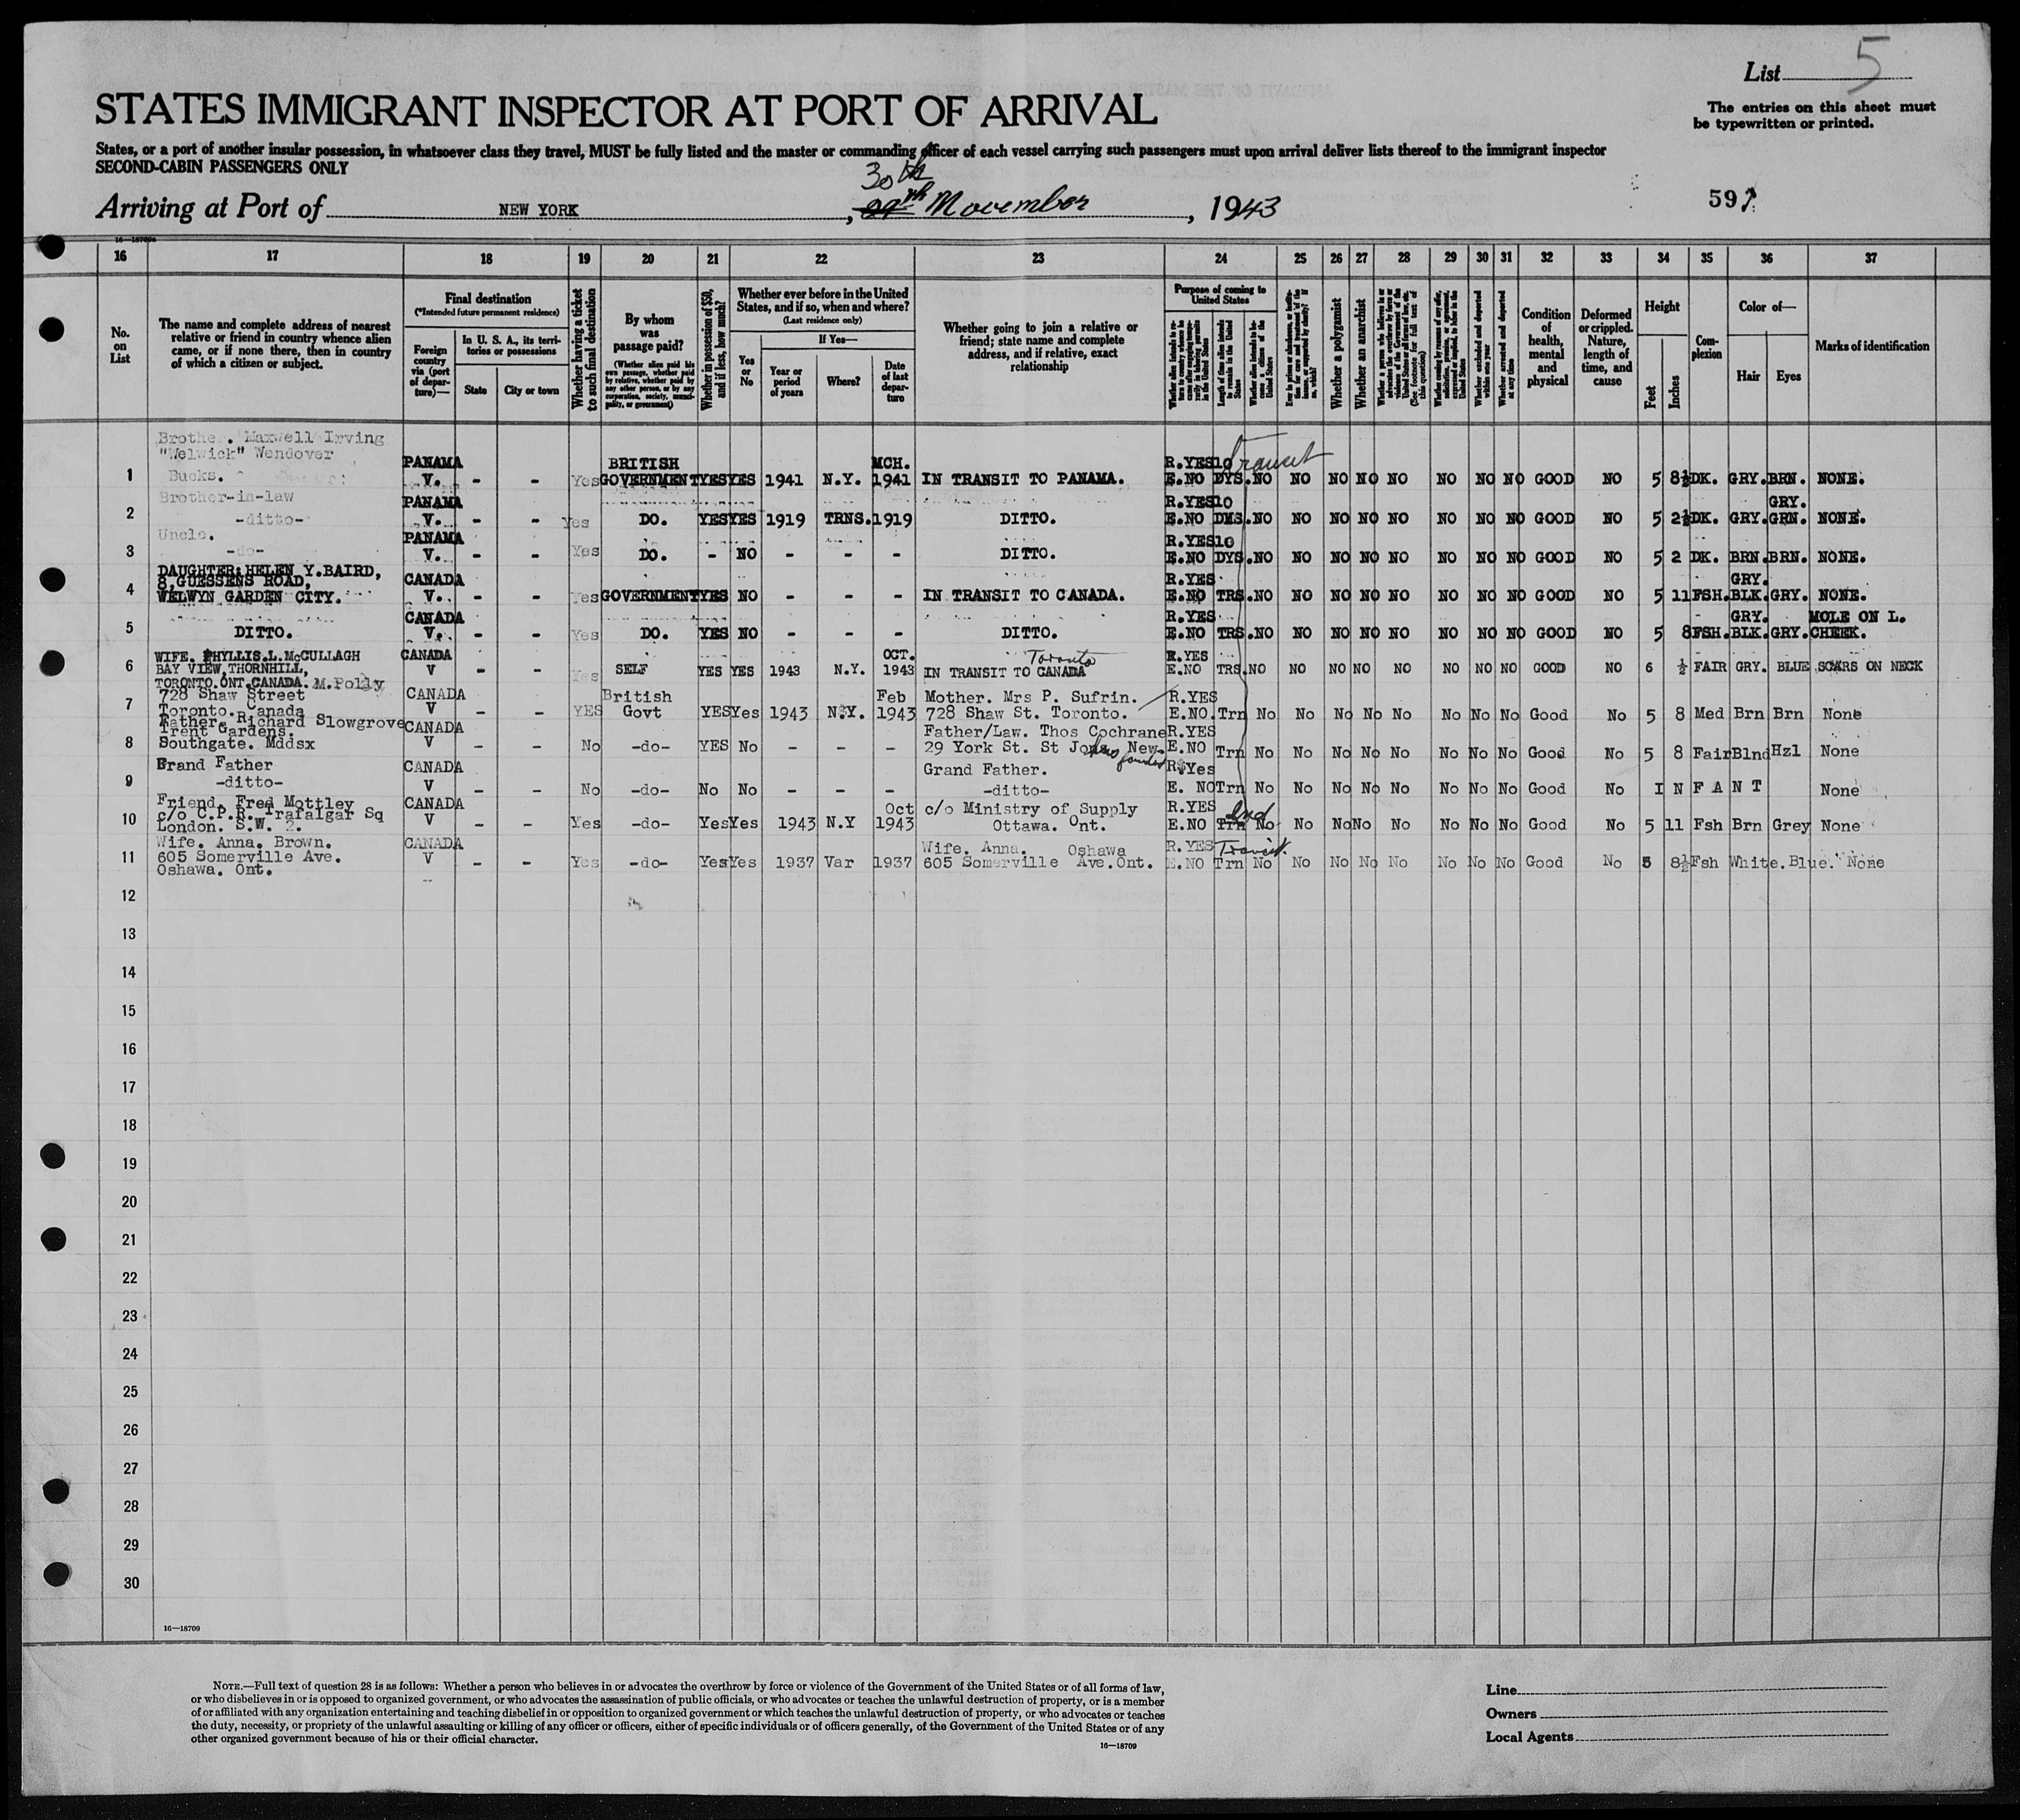 List 5
STATES IMMIGRANT INSPECTOR AT PORT OF ARRIVAL
The entries on this sheet must
be typewritten or printed.
States, or a port of another insular possession, in whatsoever class they travel, MUST be fully listed and the master or commanding officer of each vessel carrying such passengers must upon arrival deliver lists thereof to the immigrant inspector
SECOND-CABIN PASSENGERS ONLY
30th
Arriving at Port of NEW YORK, 29th November, 1943
16 17 18 19 20 21 22 23 24 25 26 27 28 29 30 31 32 33 34 35 36 37
No. on List
The name and complete address of nearest relative or friend in country whence alien came, or if none there, then in country of which a citizen or subject.
Final destination
(*Intended future permanent residence)
Foreign country via (port of departure)—
In U. S. A., its territories or possessions
State
City or town
Whether having a ticket to such final destination
By whom was passage paid?
(Whether alien paid his own passage, whether paid by relative, whether paid by any other person, or by any corporation, society, municipality, or government)
Whether in possession of $50, and if less, how much?
Whether ever before in the United States, and if so, when and where?
(Last residence only)
Yes or No
If Yes—
Year or period of years
Where?
Date of last departure
Whether going to join a relative or friend; state name and complete address, and if relative, exact relationship
Purpose of coming to United States
Length of time alien intends to remain in the United States
Whether alien intends to become a citizen of the United States
Whether a polygamist
Whether an anarchist
Whether excluded and deported within one year
Whether arrested and deported at any time
Condition of health, mental and physical
Deformed or crippled. Nature, length of time, and cause
Height
Feet
Inches
Complexion
Color of—
Hair
Eyes
Marks of identification
Transit
1 Brother. Maxwell Irving "Welwick" Wendover Bucks. PANAMA V. - - Yes BRITISH GOVERNMENT YES YES 1941 N.Y. MCH. 1941 IN TRANSIT TO PANAMA. R.YES E.NO 10 DYS. NO NO NO NO NO NO NO NO GOOD NO 5 8½ DK. GRY. BRN. NONE.
2 Brother-in-law -ditto- PANAMA V. - - Yes DO. YES YES 1919 TRNS. 1919 DITTO. R.YES E.NO 10 DYS. NO NO NO NO NO NO NO NO GOOD NO 5 2½ DK. GRY. GRY. GRN. NONE.
3 Uncle. -do- PANAMA V. - - Yes DO. - NO - - - DITTO. R.YES E.NO 10 DYS. NO NO NO NO NO NO NO NO GOOD NO 5 2 DK. BRN. BRN. NONE.
4 DAUGHTER: HELEN Y. BAIRD, 8, GUESSENS ROAD, WELWYN GARDEN CITY. CANADA V. - - Yes GOVERNMENT YES NO - - - IN TRANSIT TO CANADA. R.YES E.NO TRS. NO NO NO NO NO NO NO NO GOOD NO 5 11 FSH. GRY. BLK. GRY. NONE.
5 DITTO. CANADA V. - - Yes DO. YES NO - - - DITTO. R.YES E.NO TRS. NO NO NO NO NO NO NO NO GOOD NO 5 8 FSH. GRY. BLK. GRY. MOLE ON L. CHEEK.
6 WIFE. PHYLLIS.L.McCULLAGH BAY VIEW, THORNHILL, TORONTO.ONT.CANADA. CANADA V - - Yes SELF YES YES 1943 N.Y. OCT. 1943 IN TRANSIT TO CANADA Toronto R.YES E.NO TRS. NO NO NO NO NO NO NO NO GOOD NO 6 ½ FAIR GRY. BLUE SCARS ON NECK
7 M.Polly 728 Shaw Street Toronto. Canada CANADA V - - YES British Govt YES Yes 1943 N.Y. Feb 1943 Mother. Mrs P. Sufrin. 728 Shaw St. Toronto. R.YES E.NO. Trn No No No No No No No No Good No 5 8 Med Brn Brn None
8 Father. Richard Slowgrove Trent Gardens. Southgate. Mddsx CANADA V - - No -do- YES No - - - Father/Law. Thos Cochrane 29 York St. St Johns Newfoundland R.YES E.NO Trn No No No No No No No No Good No 5 8 Fair Blnd Hzl None
9 Grand Father -ditto- CANADA V - - No -do- No No - - - Grand Father. -ditto- R.Yes E. NO Trn No No No No No No No No Good No INFANT None
10 Friend. Fred Mottley c/o C.P.R. Trafalgar Sq London. S.W. 2. CANADA V - - Yes -do- Yes Yes 1943 N.Y Oct 1943 c/o Ministry of Supply Ottawa. Ont. R.YES E.NO Trn No No No No No No No No Good No 5 11 Fsh Brn Grey None
11 Wife. Anna. Brown. 605 Somerville Ave. Oshawa. Ont. CANADA V - - Yes -do- Yes Yes 1937 Var 1937 Wife. Anna. Oshawa 605 Somerville Ave.Ont. R.YES E.NO Transit. Trn No No No No No No No No Good No 5 8½ Fsh White. Blue. None
12
13
14
15
16
17
18
19
20
21
22
23
24
25
26
27
28
29
30
16—18709
NOTE.—Full text of question 28 is as follows: Whether a person who believes in or advocates the overthrow by force or violence of the Government of the United States or of all forms of law,
or who disbelieves in or is opposed to organized government, or who advocates the assassination of public officials, or who advocates or teaches the unlawful destruction of property, or is a member
of or affiliated with any organization entertaining and teaching disbelief in or opposition to organized government or which teaches the unlawful destruction of property, or who advocates or teaches
the duty, necessity, or propriety of the unlawful assaulting or killing of any officer or officers, either of specific individuals or of officers generally, of the Government of the United States or of any
other organized government because of his or their official character.
16—18709
Line
Owners
Local Agents